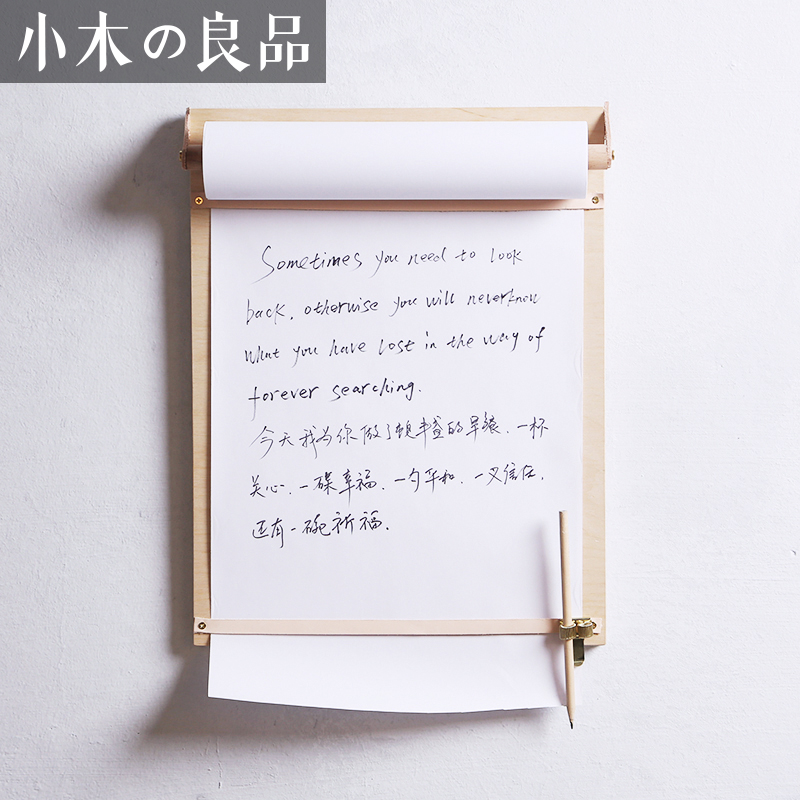 小木の良品
Sometimes you need to look
back, otherwise you will never know
what you have lost in the way of
forever searching.
今天我为你做了顿丰盛的早餐、一杯
关心、一碟幸福、一勺平和、一叉信任、
还有一碗祈福.